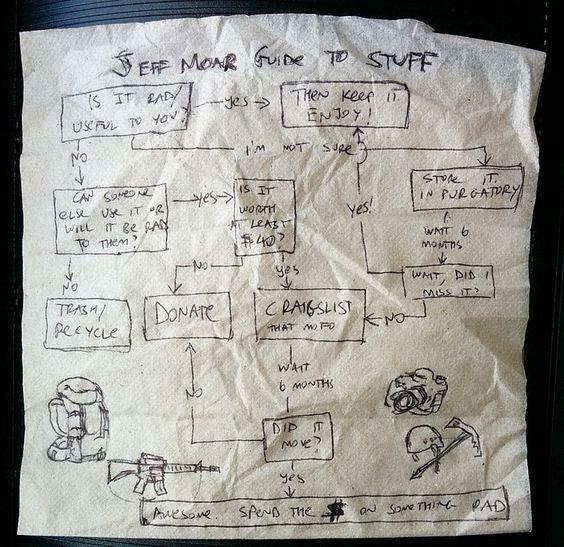 JEFF MOAR GUIDE TO STUFF
IS IT RAD/
USEFUL TO YOU?
YES
THEN KEEP IT
ENJOY!
NO
I'M NOT SURE
CAN SOMEONE
ELSE USE IT OR
WILL IT BE RAD
TO THEM?
YES
IS IT
WORTH
AT LEAST
$40?
YES!
STORE IT
IN PURGATORY
WAIT 6
MONTHS
WAIT, DID I
MISS IT?
NO
NO
YES
NO
TRASH/
RECYCLE
DONATE
CRAIGSLIST
THAT MOFO
WAIT
6 MONTHS
NO
DID IT
MOVE?
YES
AWESOME. SPEND THE $ ON SOMETHING RAD